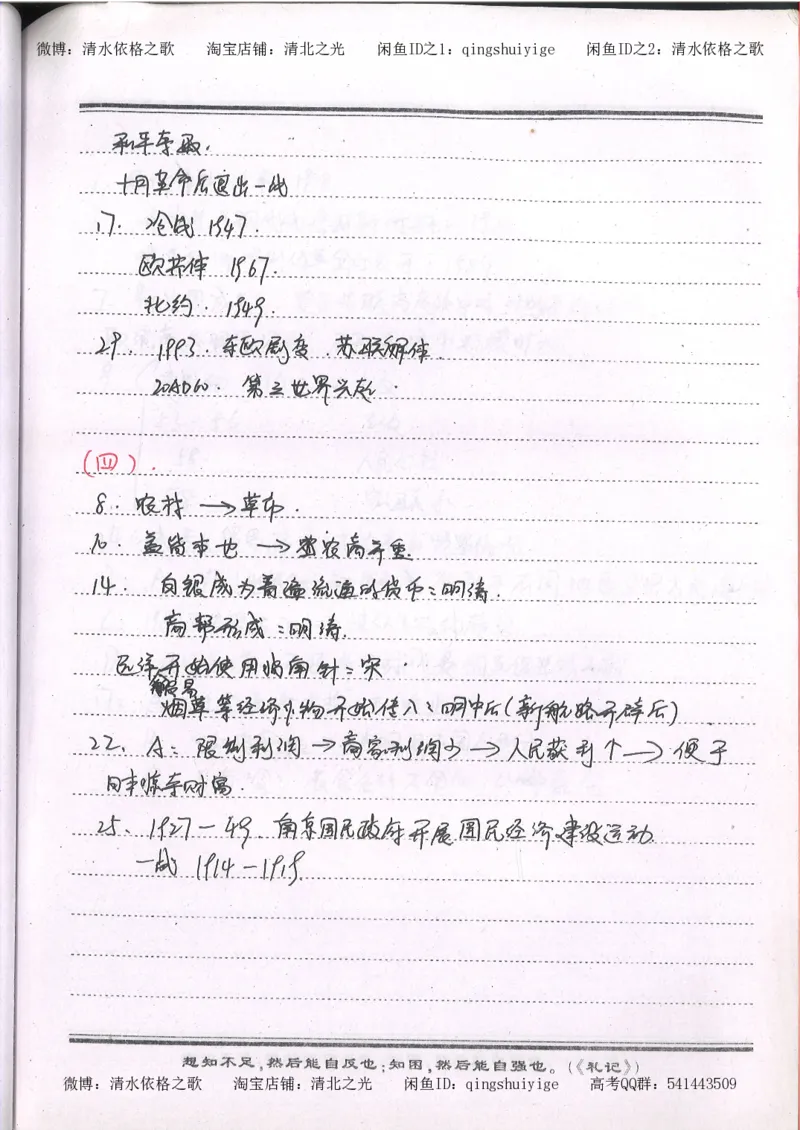 微博：清水依格之歌 淘宝店铺：清北之光 闲鱼ID之1：qingshuiyige 闲鱼ID之2：清水依格之歌
和平夺取.
十月革命后退出一战
17. 冷战 1947.
欧共体 1967.
北约. 1949.
29. 1993. 东欧剧变. 苏联解体.
第三世界兴起.
(四).
8. 农找 → 草市.
14. 白银成为普遍流通的货币：明清.
商帮形成：明清.
远洋开始使用指南针：宋.
烟草等经济作物开始传入：明中后(新航路开辟后)
22. A：限制利润 → 商家利润少 → 人民获利个 → 便于
日本掠夺财富.
25. 1927－49. 南京国民政府开展国民经济建设运动.
一战 1914－1919.
想知不足,然后能自反也;知困,然后能自强也。(《礼记》)
微博：清水依格之歌 淘宝店铺：清北之光 闲鱼ID：qingshuiyige 高考QQ群：541443509